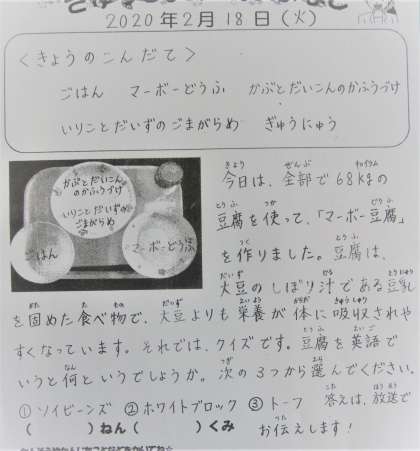 2020年2月18日(火)
<きょうのこんだて>
ごはん マーボーどうふ かぶとだいこんのかふうづけ
いりことだいずのごまがらめ ぎゅうにゅう
かぶとだいこん
のかふうづけ
いりことだいずの
ごまがらめ
ごはん
マーボーどうふ
今日は、全部で68kgの
豆腐を使って、「マーボー豆腐」
を作りました。豆腐は、
大豆のしぼり汁である豆乳
を固めた食べ物で、大豆よりも栄養が体に吸収されや
すくなっています。それでは、クイズです。豆腐を英語で
いうと何というでしょうか。次の3つから選んでください。
①ソイビーンズ ②ホワイトブロック ③トーフ 答えは、放送で
( )ねん( )くみ お伝えします！